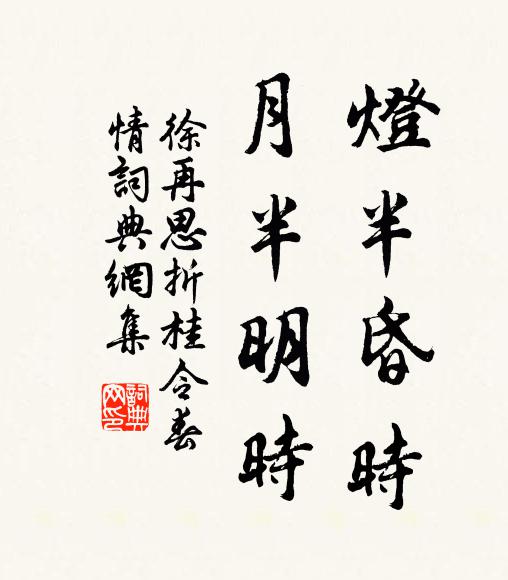 燈半昏時
月半明時
徐再思折桂令春
情詞典網集
詞典
网印